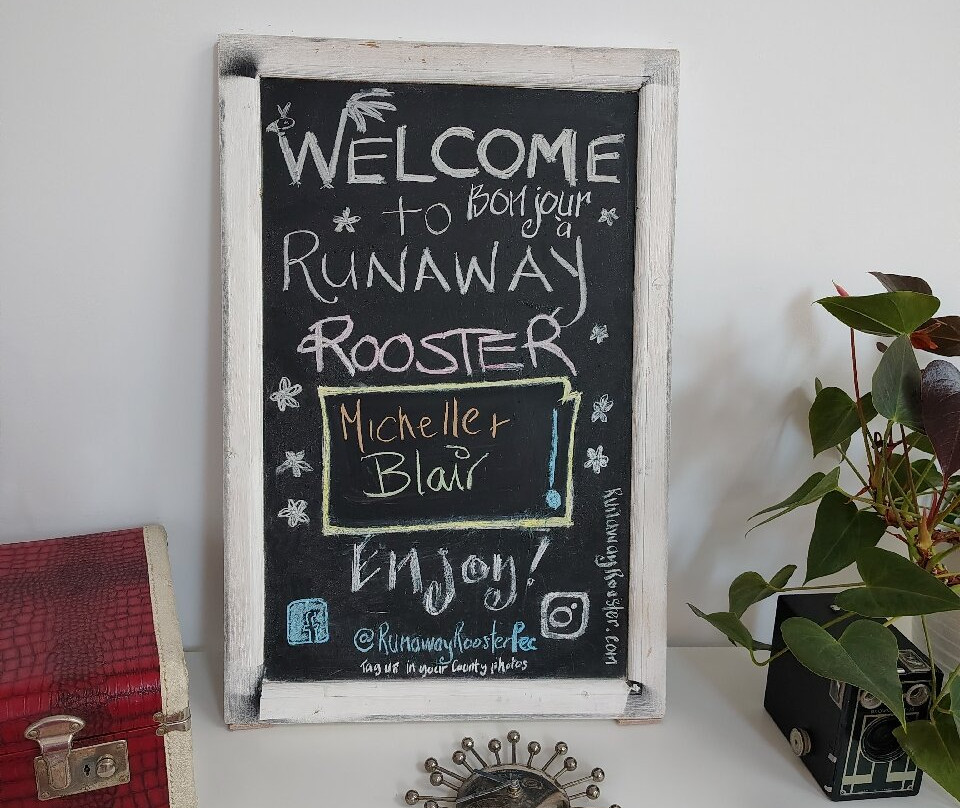 WELCOME
to Bonjour
à
RUNAWAY
ROOSTER
Michelle +
Blair !
Enjoy!
f
@RunawayRoosterPec
Tag us in your County photos
RunawayRooster.com